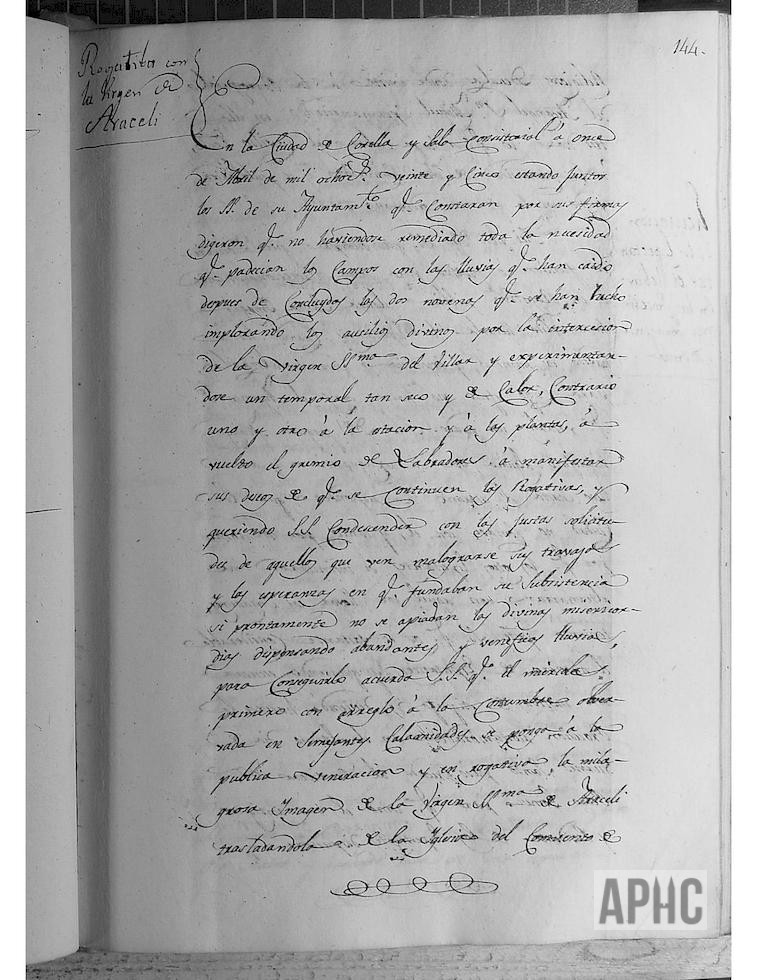 144.
Rogativa con
la Virgen de
Araceli
En la Ciudad de Corella y Sala Consistorial á once
de Abril de mil ochocs. veinte y Cinco estando juntos
los SS. de su Ayuntamto. qe. Constaran por sus firmas
digeron qe. no haviendose remediado toda la necesidad
qe. padecian los Campos con las lluvias qe. han caido
despues de Concluydos las dos novenas qe. se han hecho
implorando los auxilios divinos por la intercesion
de la Virgen SSma. del Villar y experimentan-
dose un temporal tan seco y de Calor, Contrario
uno y otro á la estacion y á las plantas, á
vuelto el gremio de Labradores á manifestar
sus deseos de qe. se Continuen las Rogativas, y
queriendo S.S. Condescender con las justas solicitu-
des de aquellos que ven malograrse sus travajos
y las esperanzas en qe. fundaban su Subsistencia
si prontamente no se apiadan las divinas misericor-
dias dispensando abundantes y veneficas lluvias,
para Conseguirlo acuerda S.S. qe. el miercoles
primero con arreglo á la Costumbre obser-
vada en Semejantes Calamidades se ponga á la
publica veneracion y en rogativa la mila-
grosa Imagen de la Virgen SSma. de Araceli
trasladandola de la Iglesia del Convento de
APHC